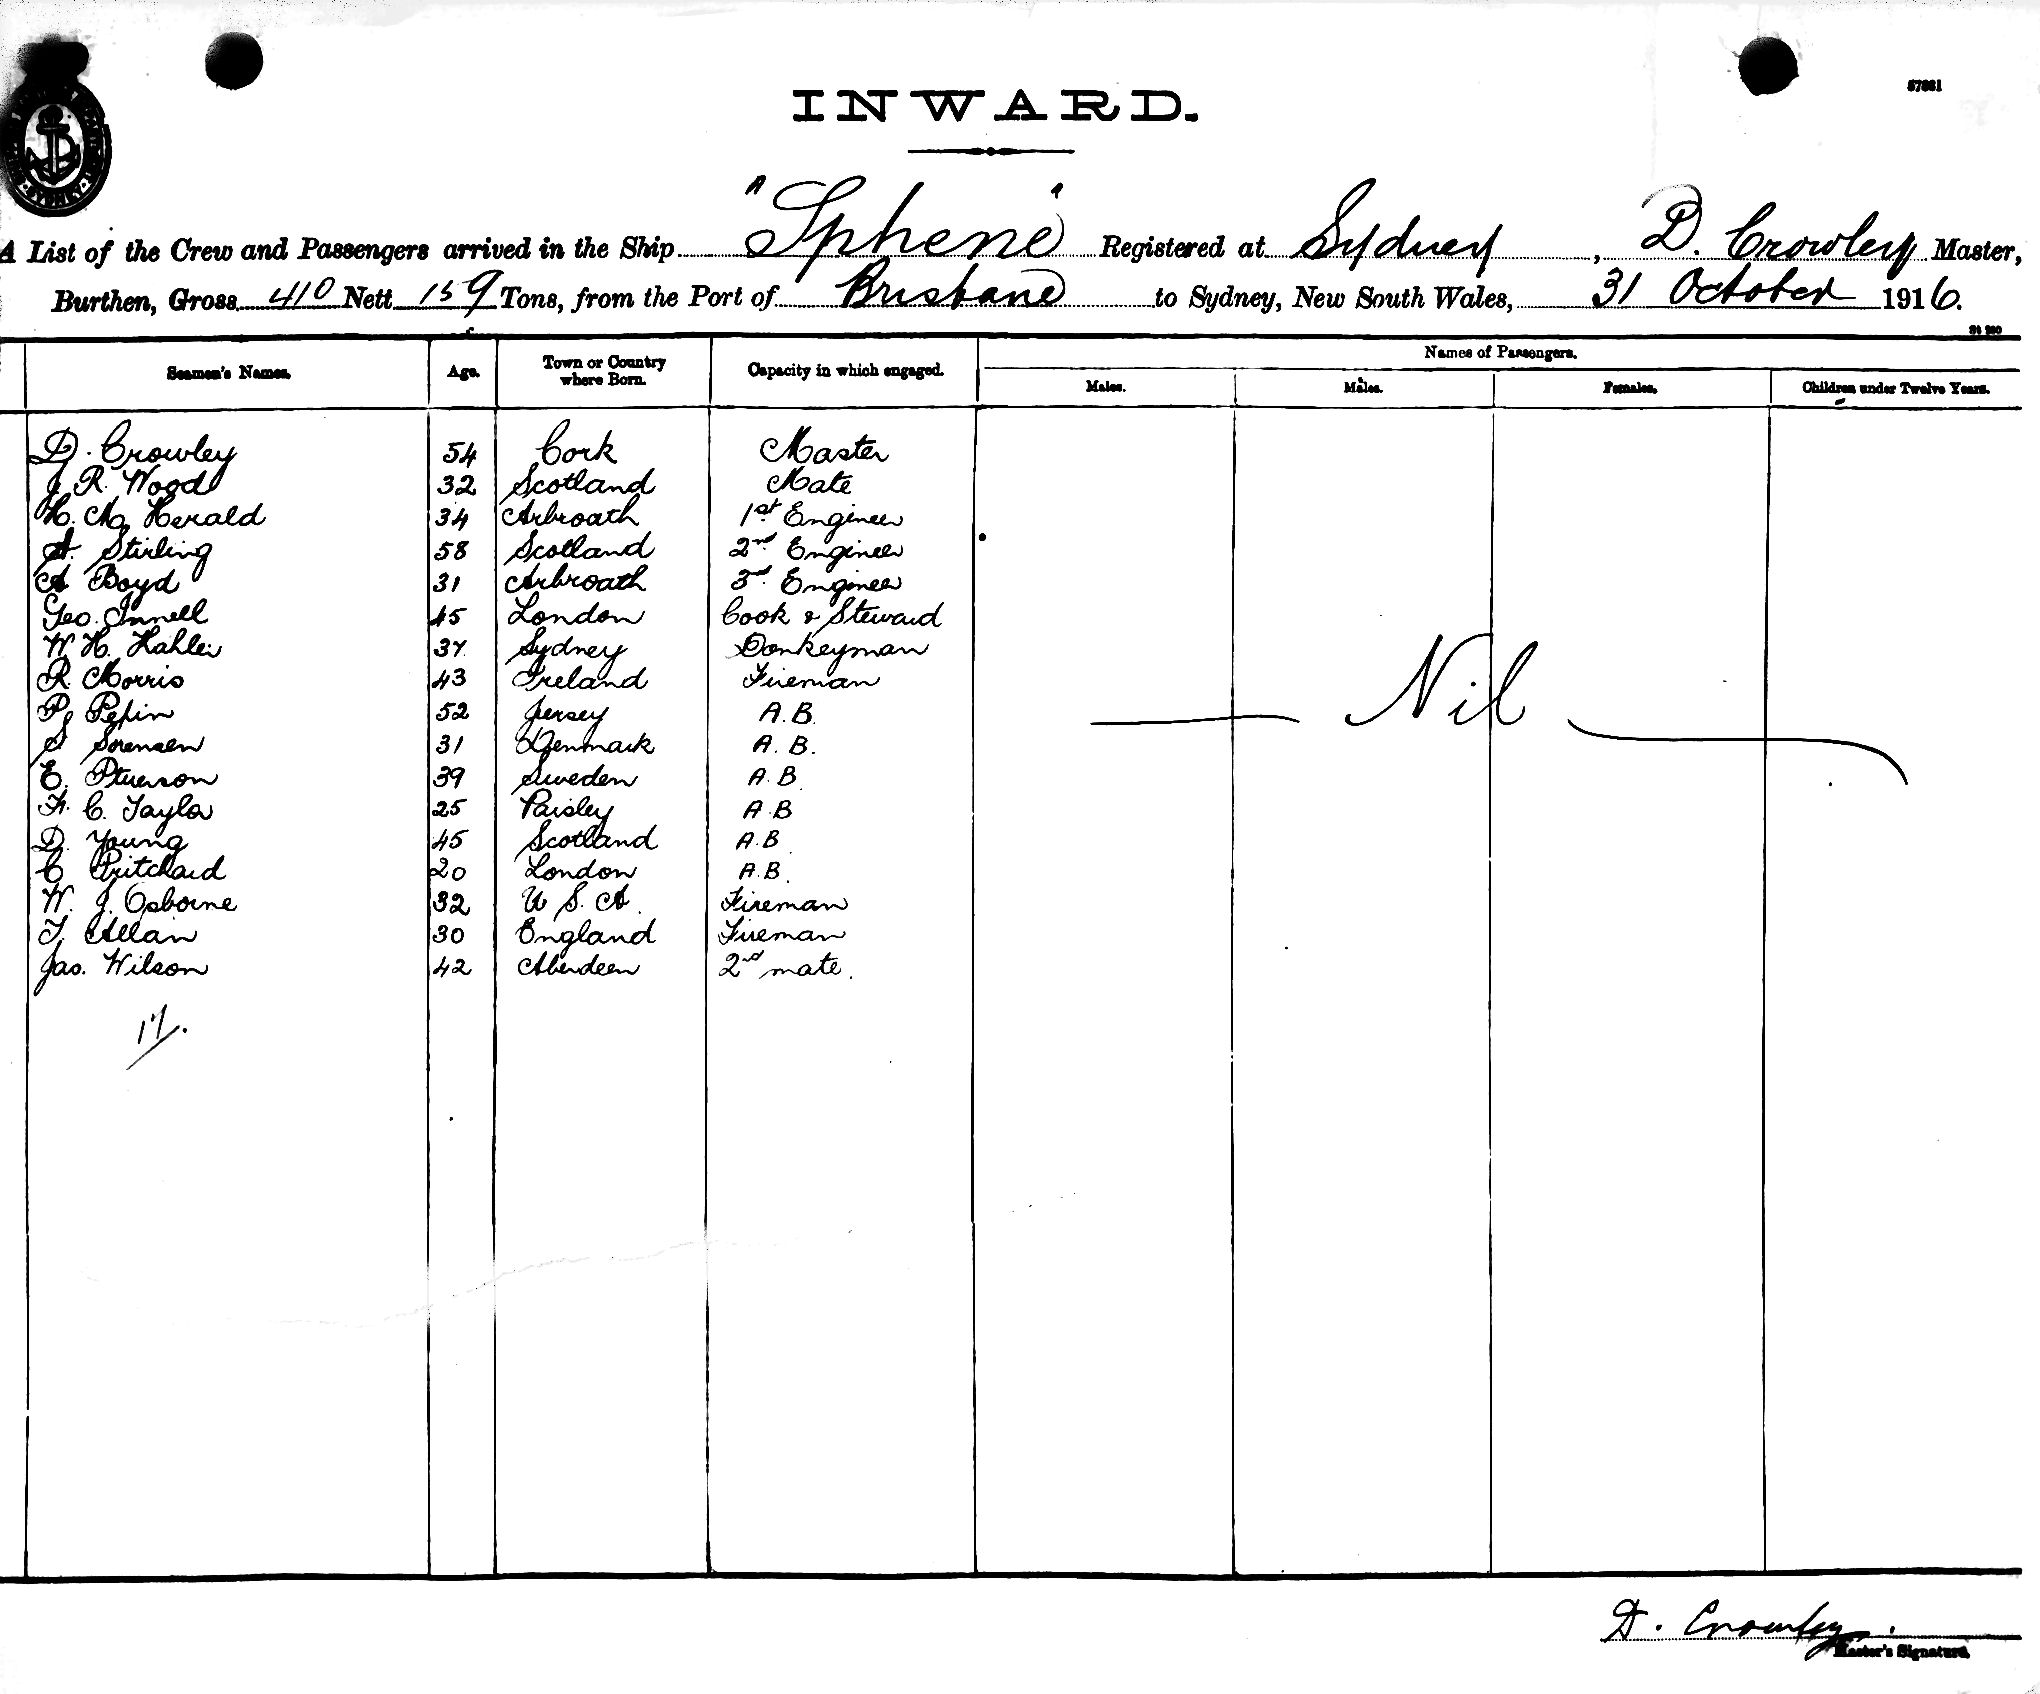 57881
INWARD.
A List of the Crew and Passengers arrived in the Ship "Sphene" Registered at Sydney, D. Crowley Master,
Burthen, Gross 410 Nett 159 Tons, from the Port of Brisbane to Sydney, New South Wales, 31 October 1916.
Names of Passengers.
Seamen's Names. Age. Town or Country where Born. Capacity in which engaged. Males. Males. Females. Children under Twelve Years.
D. Crowley 54 Cork Master
J R. Wood 32 Scotland Mate
H. M. Herald 34 Arbroath 1st Engineer
A. Stirling 58 Scotland 2nd Engineer
A Boyd 31 Arbroath 3rd Engineer
Geo. Innell 45 London Cook & Steward
W. H. Kahler 37 Sydney Donkeyman
R. Morris 43 Ireland Fireman
Nil
P. Pepin 52 Jersey A.B.
S Sorensen 31 Denmark A.B.
E. Peterson 39 Sweden A.B
F. C. Taylor 25 Paisley A.B
D. Young 45 Scotland A.B
C Pritchard 20 London A.B.
W. J. Osborne 32 U S. A. Fireman
T. Allan 30 England Fireman
Jas. Wilson 42 Aberdeen 2nd mate.
17.
D. Crowley.
Master's Signature.